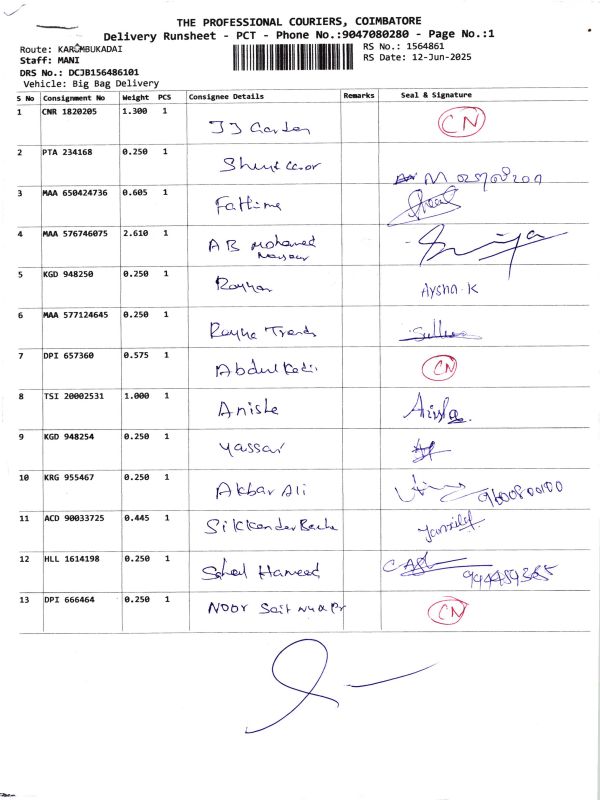 THE PROFESSIONAL COURIERS, COIMBATORE
Delivery Runsheet - PCT - Phone No.:9047080280 - Page No.:1
Route: KARUMBUKADAI
RS No.: 1564861
Staff: MANI
RS Date: 12-Jun-2025
DRS No.: DCJB156486101
Vehicle: Big Bag Delivery
S No Consignment No Weight PCS Consignee Details Remarks Seal & Signature
1 CNR 1820205 1.300 1 JJ Garden CN
2 PTA 234168 0.250 1
3 MAA 650424736 0.605 1 Fathima
4 MAA 576746075 2.610 1 AB Mohamed
5 KGD 948250 0.250 1 Rayyan Aysha K
6 MAA 577124645 0.250 1 Rayna Trends
7 DPI 657360 0.575 1 Abdul Kadir CN
8 TSI 20002531 1.000 1 Anisha
9 KGD 948254 0.250 1 Yassar
10 KRG 955467 0.250 1 Akbar Ali 9600800100
11 ACD 90033725 0.445 1 Sikkander Basha
12 HLL 1614198 0.250 1 Sahed Hameed
13 DPI 666464 0.250 1 Noor Sait CN